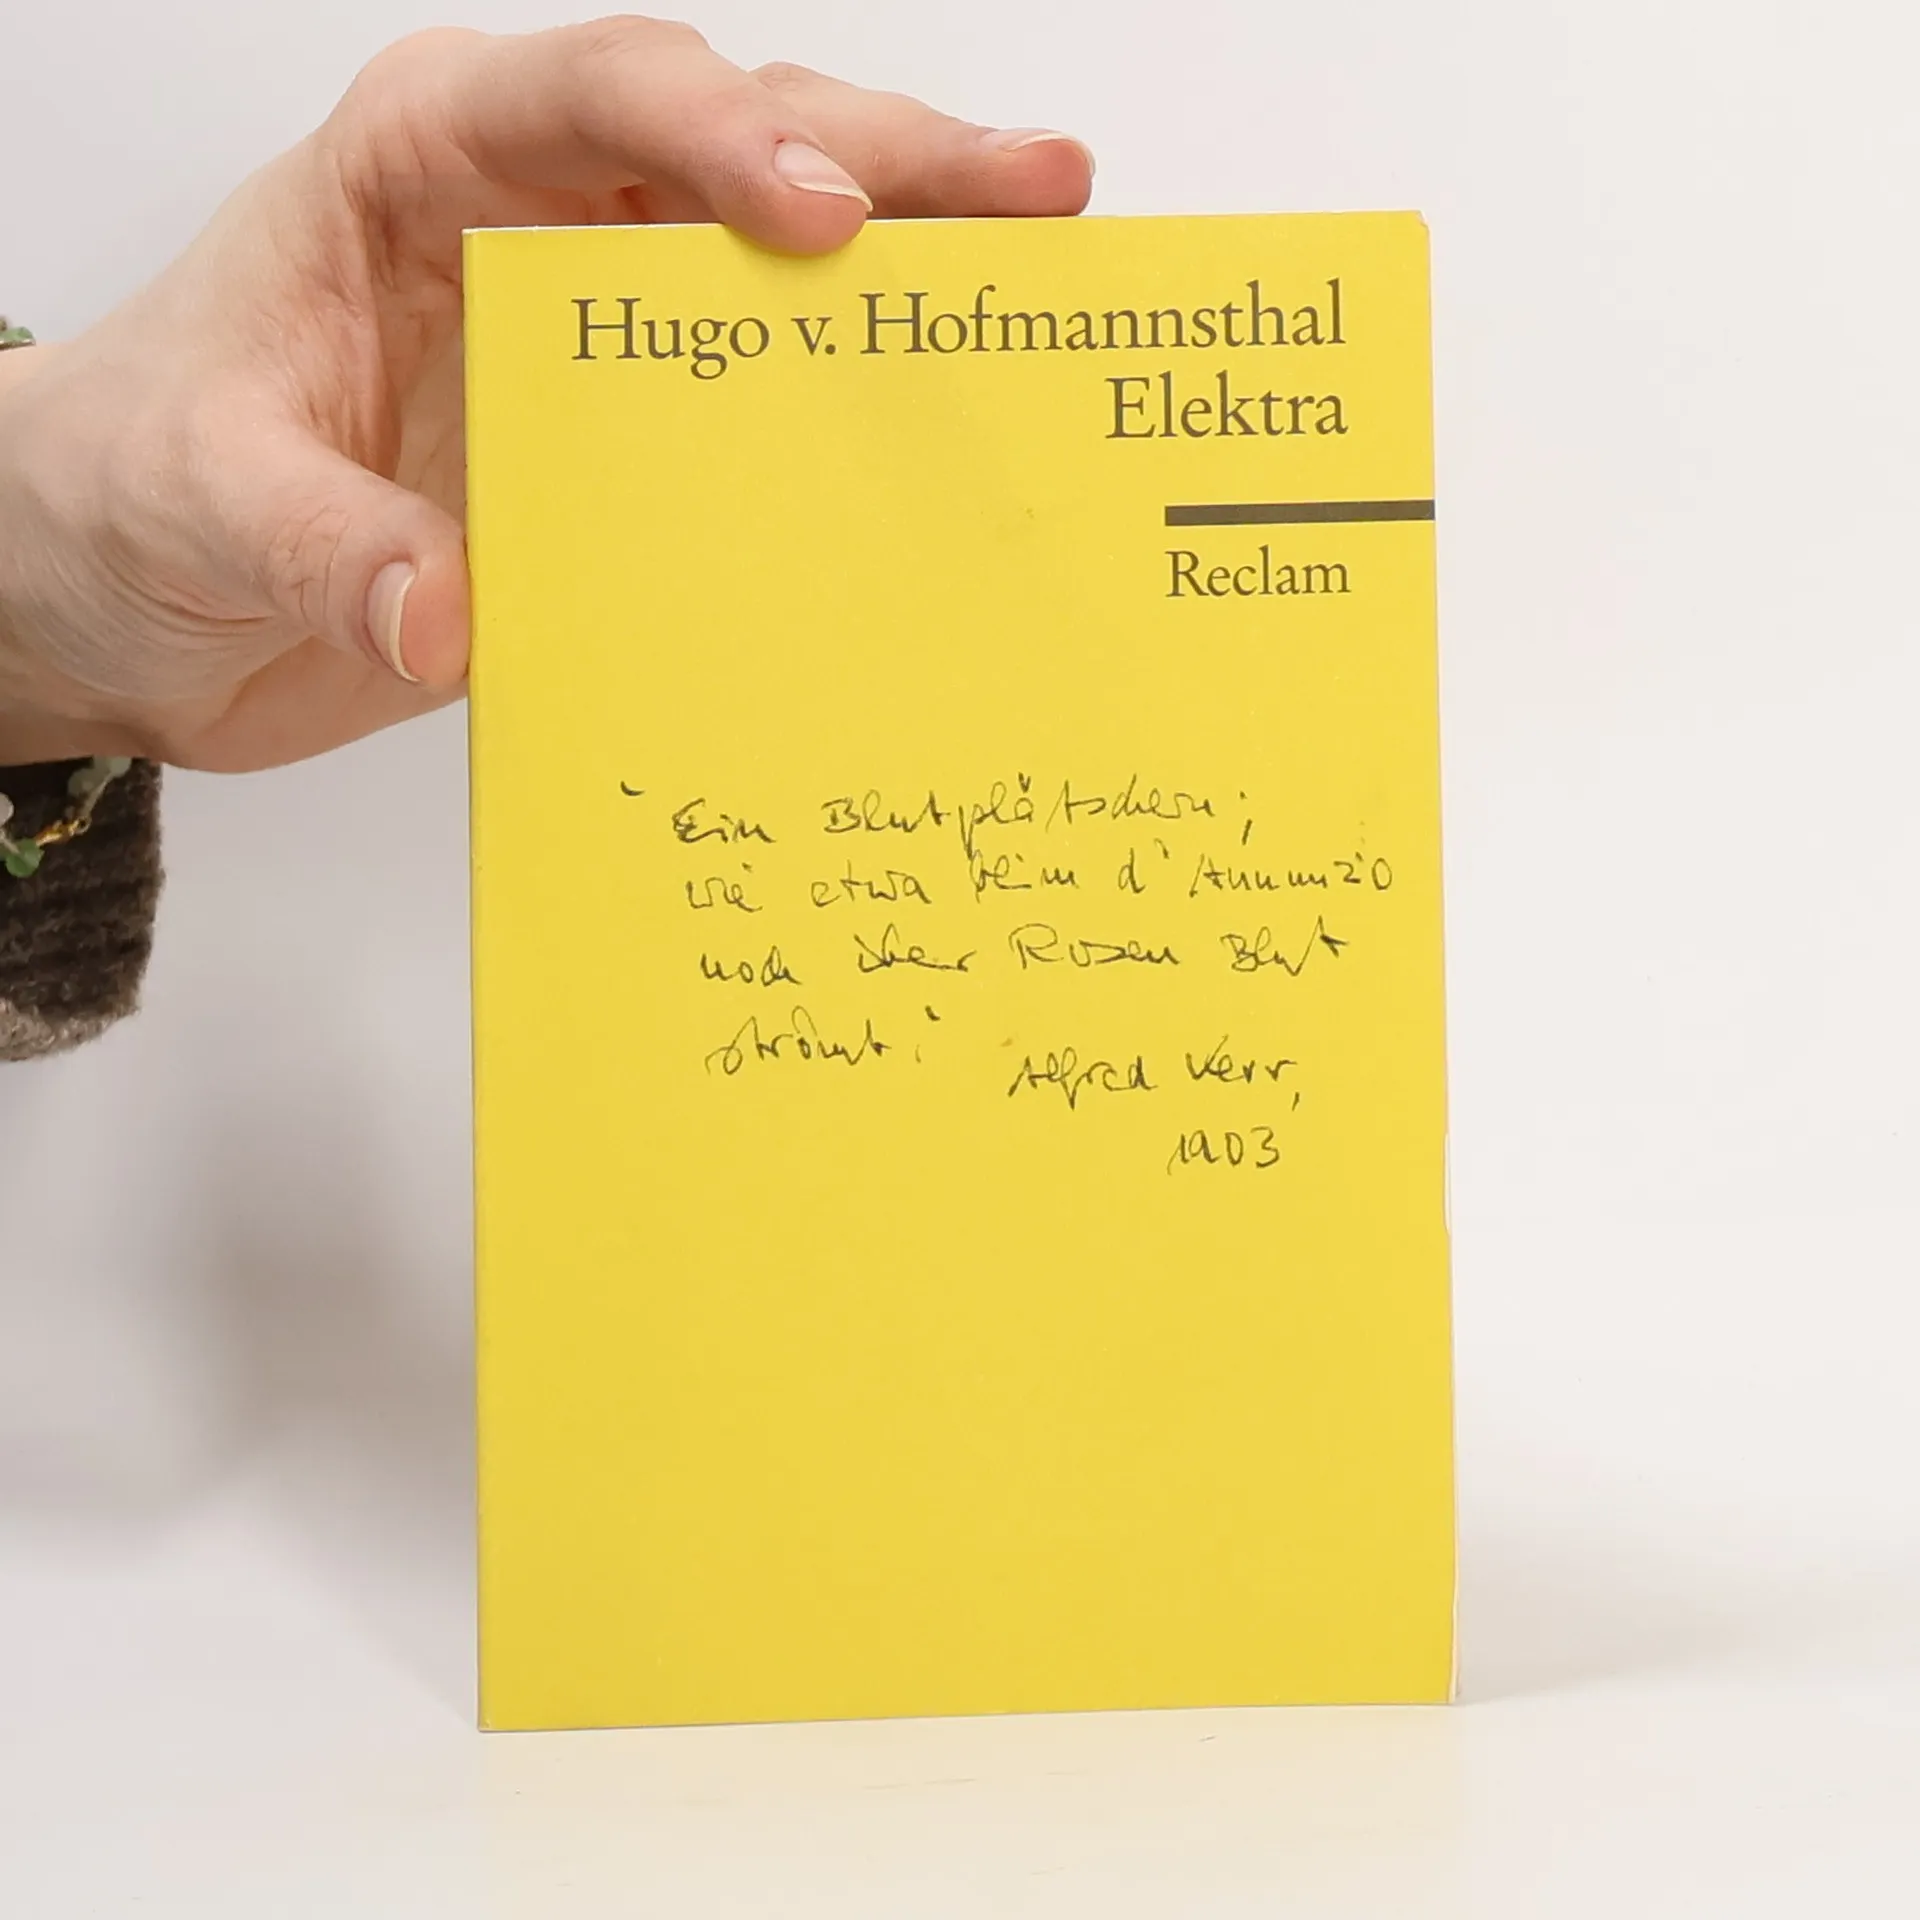 Hugo v. Hofmannsthal
Elektra
Reclam
"Ein Blutplätschern;
wie etwa beim d'Annunzio
noch über Rosen Blut
strömt." Alfred Kerr,
1903